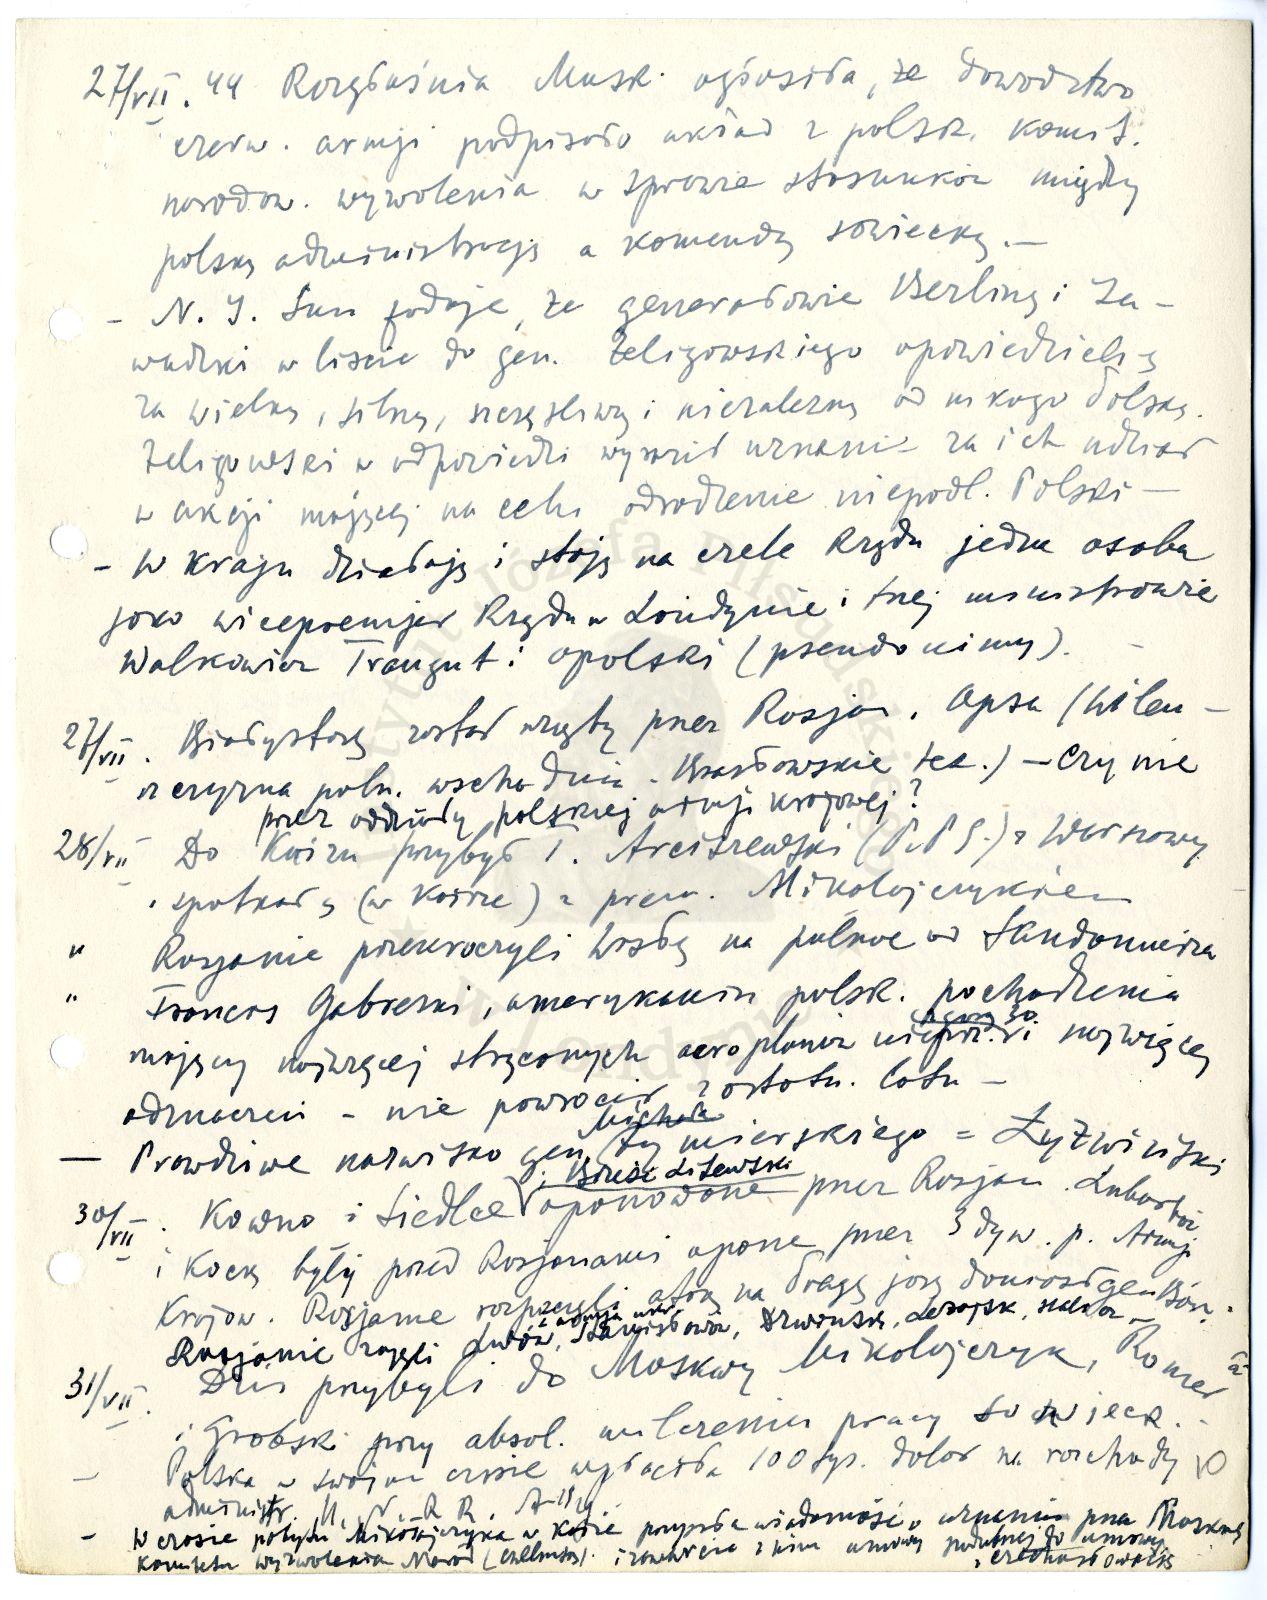 27/VII. 44 Rozgłośnia Mosk. ogłosiła, że dowództwo
czerw. armji podpisało układ z polsk. komit.
narodow. wyzwolenia w sprawie stosunków między
polską administracją a komendą sowiecką. —
— N. Y. Sun podaje, że generałowie Berling i Za-
wadzki w liście do gen. Żeligowskiego opowiedzieli się
za wielką, silną, szczęśliwą i niezależną od nikogo Polską.
Żeligowski w odpowiedzi wyraził uznanie za ich udział
w akcji mającej na celu odrodzenie niepodl. Polski —
— W kraju działają i stoją na czele Rządu jedna osoba
jako wicepremjer Rządu w Londynie i trzej ministrowie
Walkowicz Traugut i Opolski (pseudonimy). —
27/VII. Białystok został wzięty przez Rosjan. Opsa (Wilen-
szczyzna półn. wschodnia. Brasławskie tez.) — czy nie
przez oddziały polskiej armji krajowej?
28/VII Do Kairu przybył T. Arciszewski (P.P.S.) z Warszawy
i spotkał się (w Kairze) z prem. Mikołajczykiem
" Rosjanie przekroczyli Wisłę na północ od Sandomierza
" Francis Gabreski, amerykanin polsk. pochodzenia
mający najwięcej strąconych aeroplanów nieprz. i najwięcej
odznaczeń — nie powrócił z ostatn. lotu —
— Prawdziwe nazwisko gen. Michała Żymierskiego = Łyżwiński
i Brześć Litewski
30/VII. Kowno i Siedlce opanowane przez Rosjan. Lubartów
i Kock były przed Rosjanami zajęte przez 3 dyw. p. Armji
Krajow. Rosjanie rozpoczęli atak na Pragę jak doniósł gen Bór.
Rosjanie zajęli Lwów, Stanisławów, Leżajsk,
31/VII. Dziś przybyli do Moskwy Mikołajczyk, Romer
i Grabski przy absol. milczeniu prasy sowieck. —
— Polska w swoim czasie wypłaciła 100 tys. dolar na rozchody
administr. U. N. R. R. A-ry
— W czasie pobytu Mikołajczyka w Kairze przyszła wiadomość o uznaniu przez Moskwę
Komitetu Wyzwolenia Narod (Chełmski) i zawarciu z nim umowy podobnej do umowy
z czechosłowacją